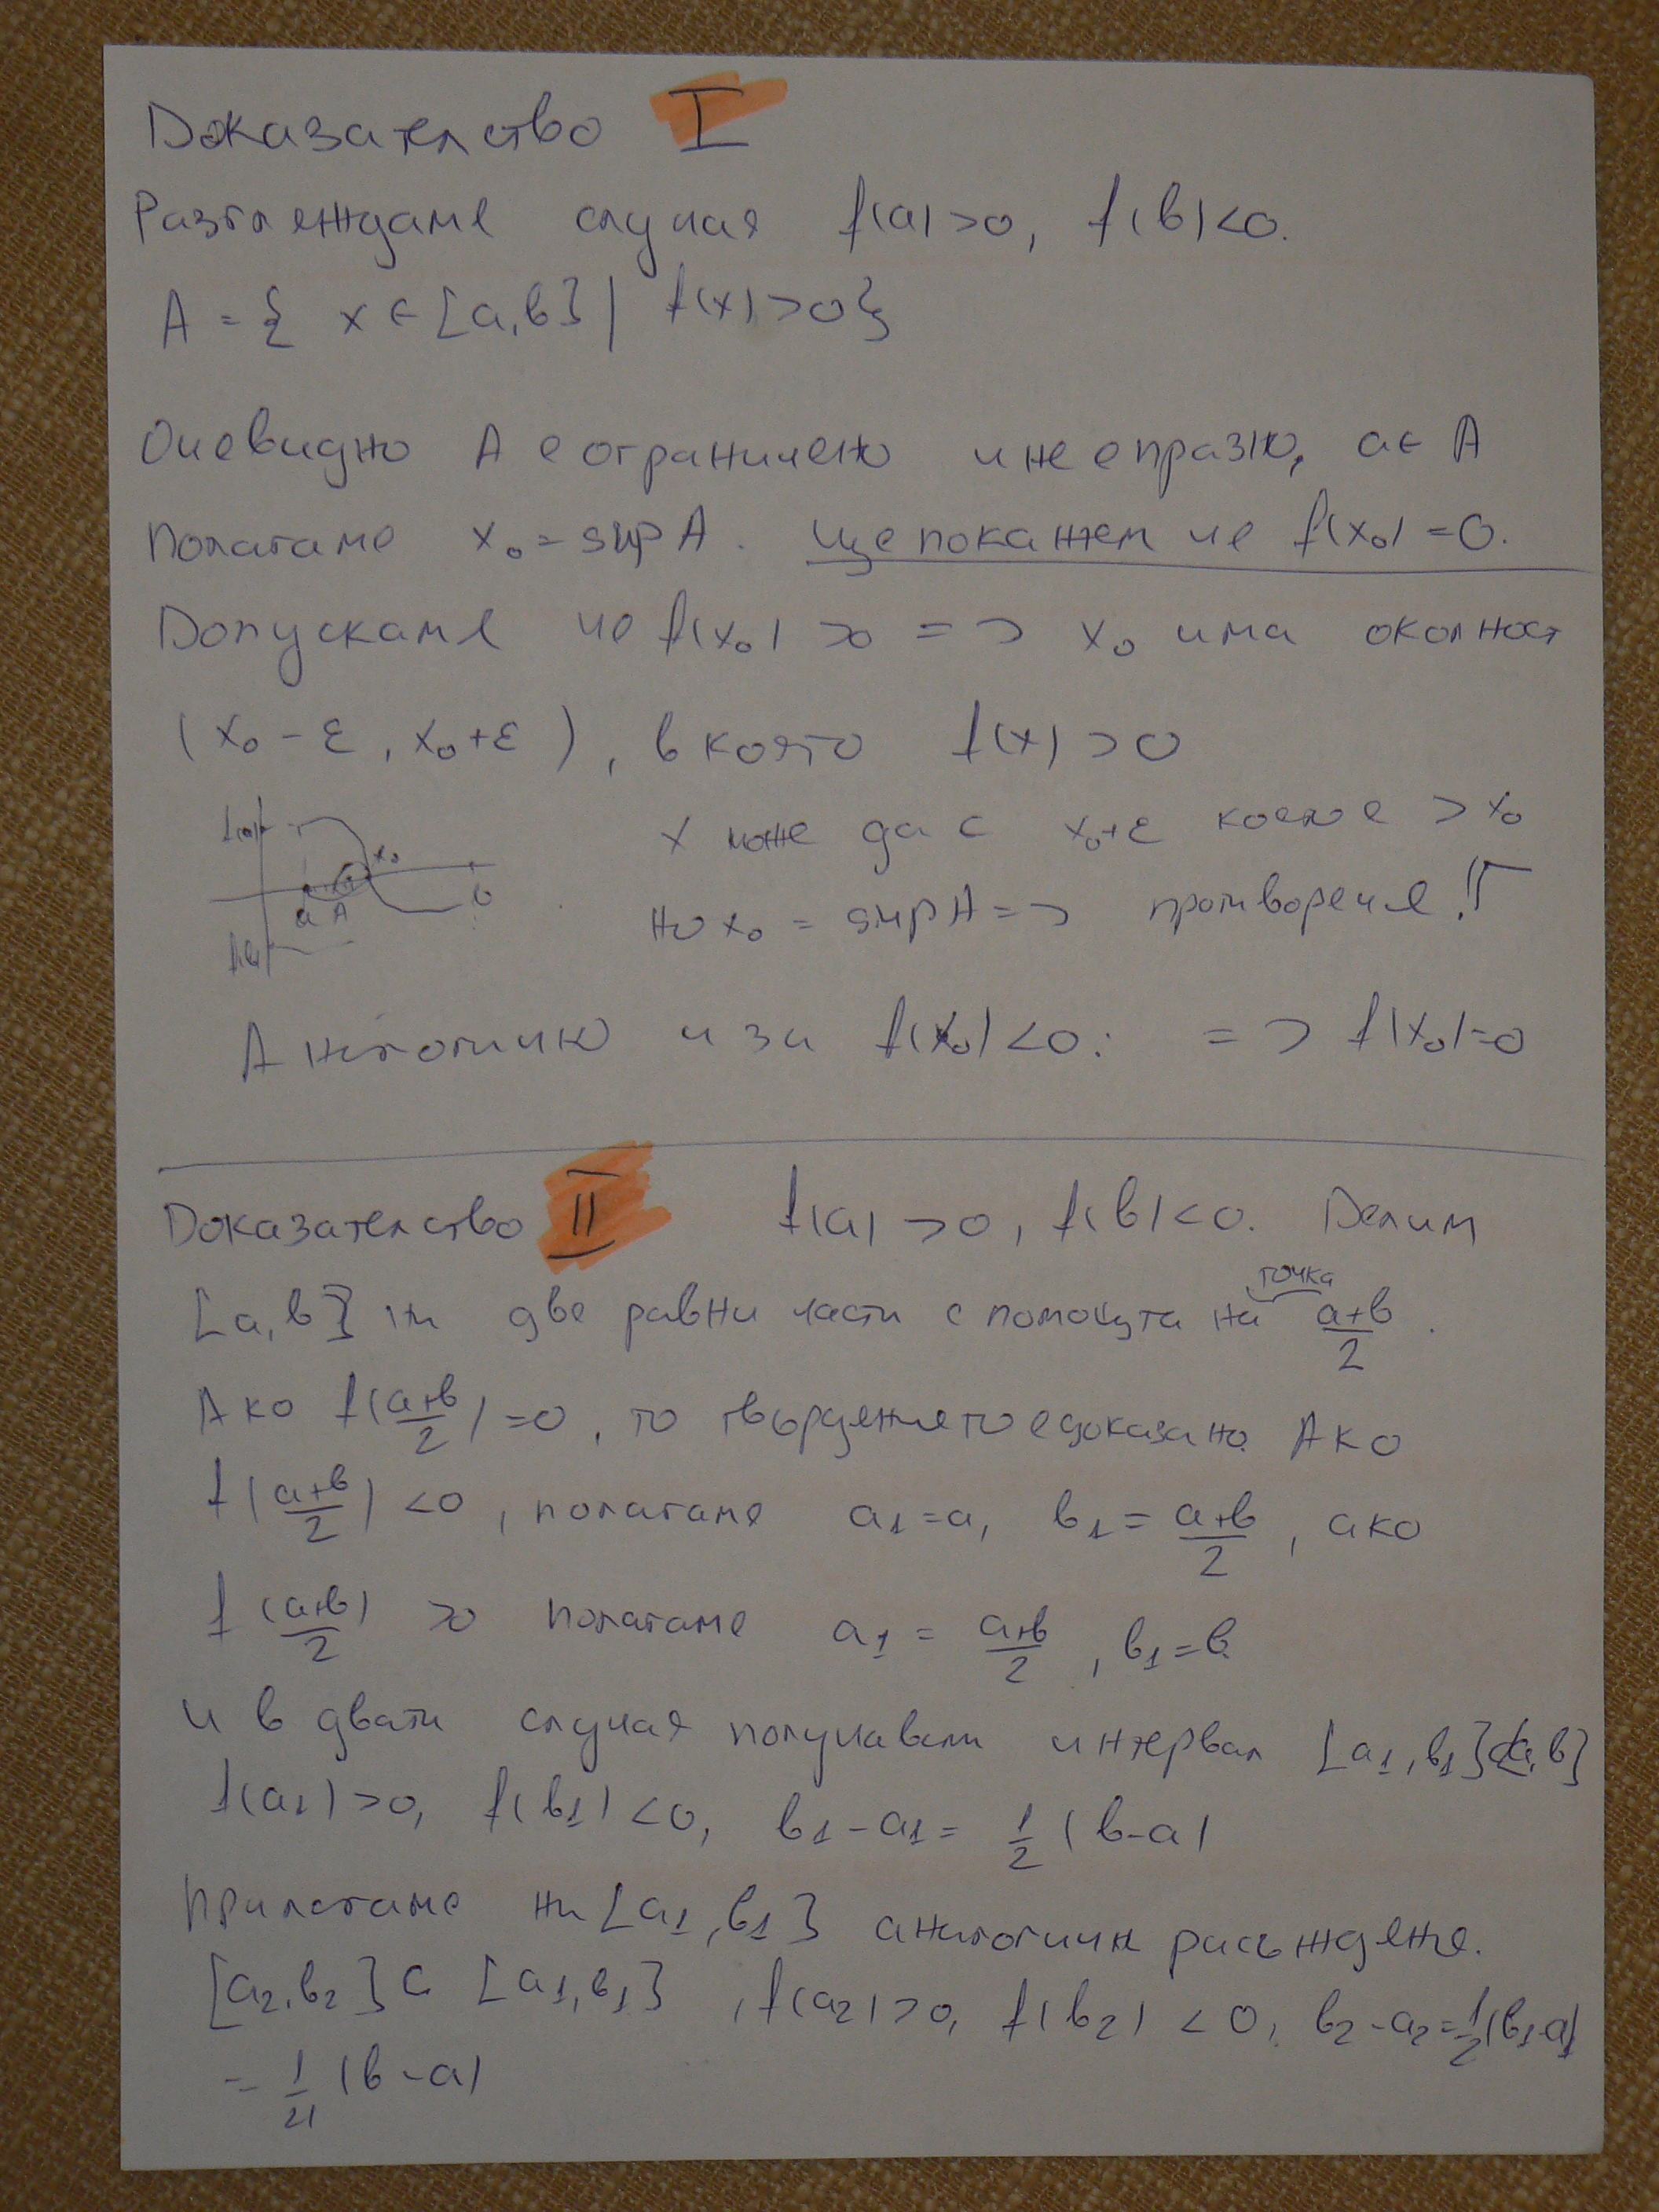 Доказателство I
Разглеждаме случая f(a)>0, f(b)<0.
A = { x ∈ [a,b] | f(x)>0}
Очевидно A е ограничено и не е празно, a ∈ A
Полагаме x₀ = sup A. Ще покажем че f(x₀) = 0.
Допускаме че f(x₀) >0 => x₀ има околност
(x₀ - ε, x₀+ε), в която f(x) >0
x може да е x₀+ε което е > x₀
но x₀ = sup A => противоречие!!
f(a) x₀
a A b
f(b)
Аналогично и за f(x₀)<0: => f(x₀)=0
Доказателство II f(a) >0, f(b)<0. Делим
точка
[a,b] на две равни части с помощта на (a+b)/2.
Ако f((a+b)/2)=0, то твърдението е доказано. Ако
f((a+b)/2) <0, полагаме a₁=a, b₁ = (a+b)/2, ако
f((a+b)/2) >0 полагаме a₁ = (a+b)/2, b₁=b.
и в двата случая получавам интервал [a₁,b₁]⊂[a,b]
f(a₁)>0, f(b₁)<0, b₁-a₁= 1/2 (b-a)
Прилагаме на [a₁,b₁] аналогични разсъждения.
[a₂,b₂] ⊂ [a₁,b₁], f(a₂)>0, f(b₂) <0, b₂-a₂=1/2(b₁-a₁)
= 1/4 (b-a)